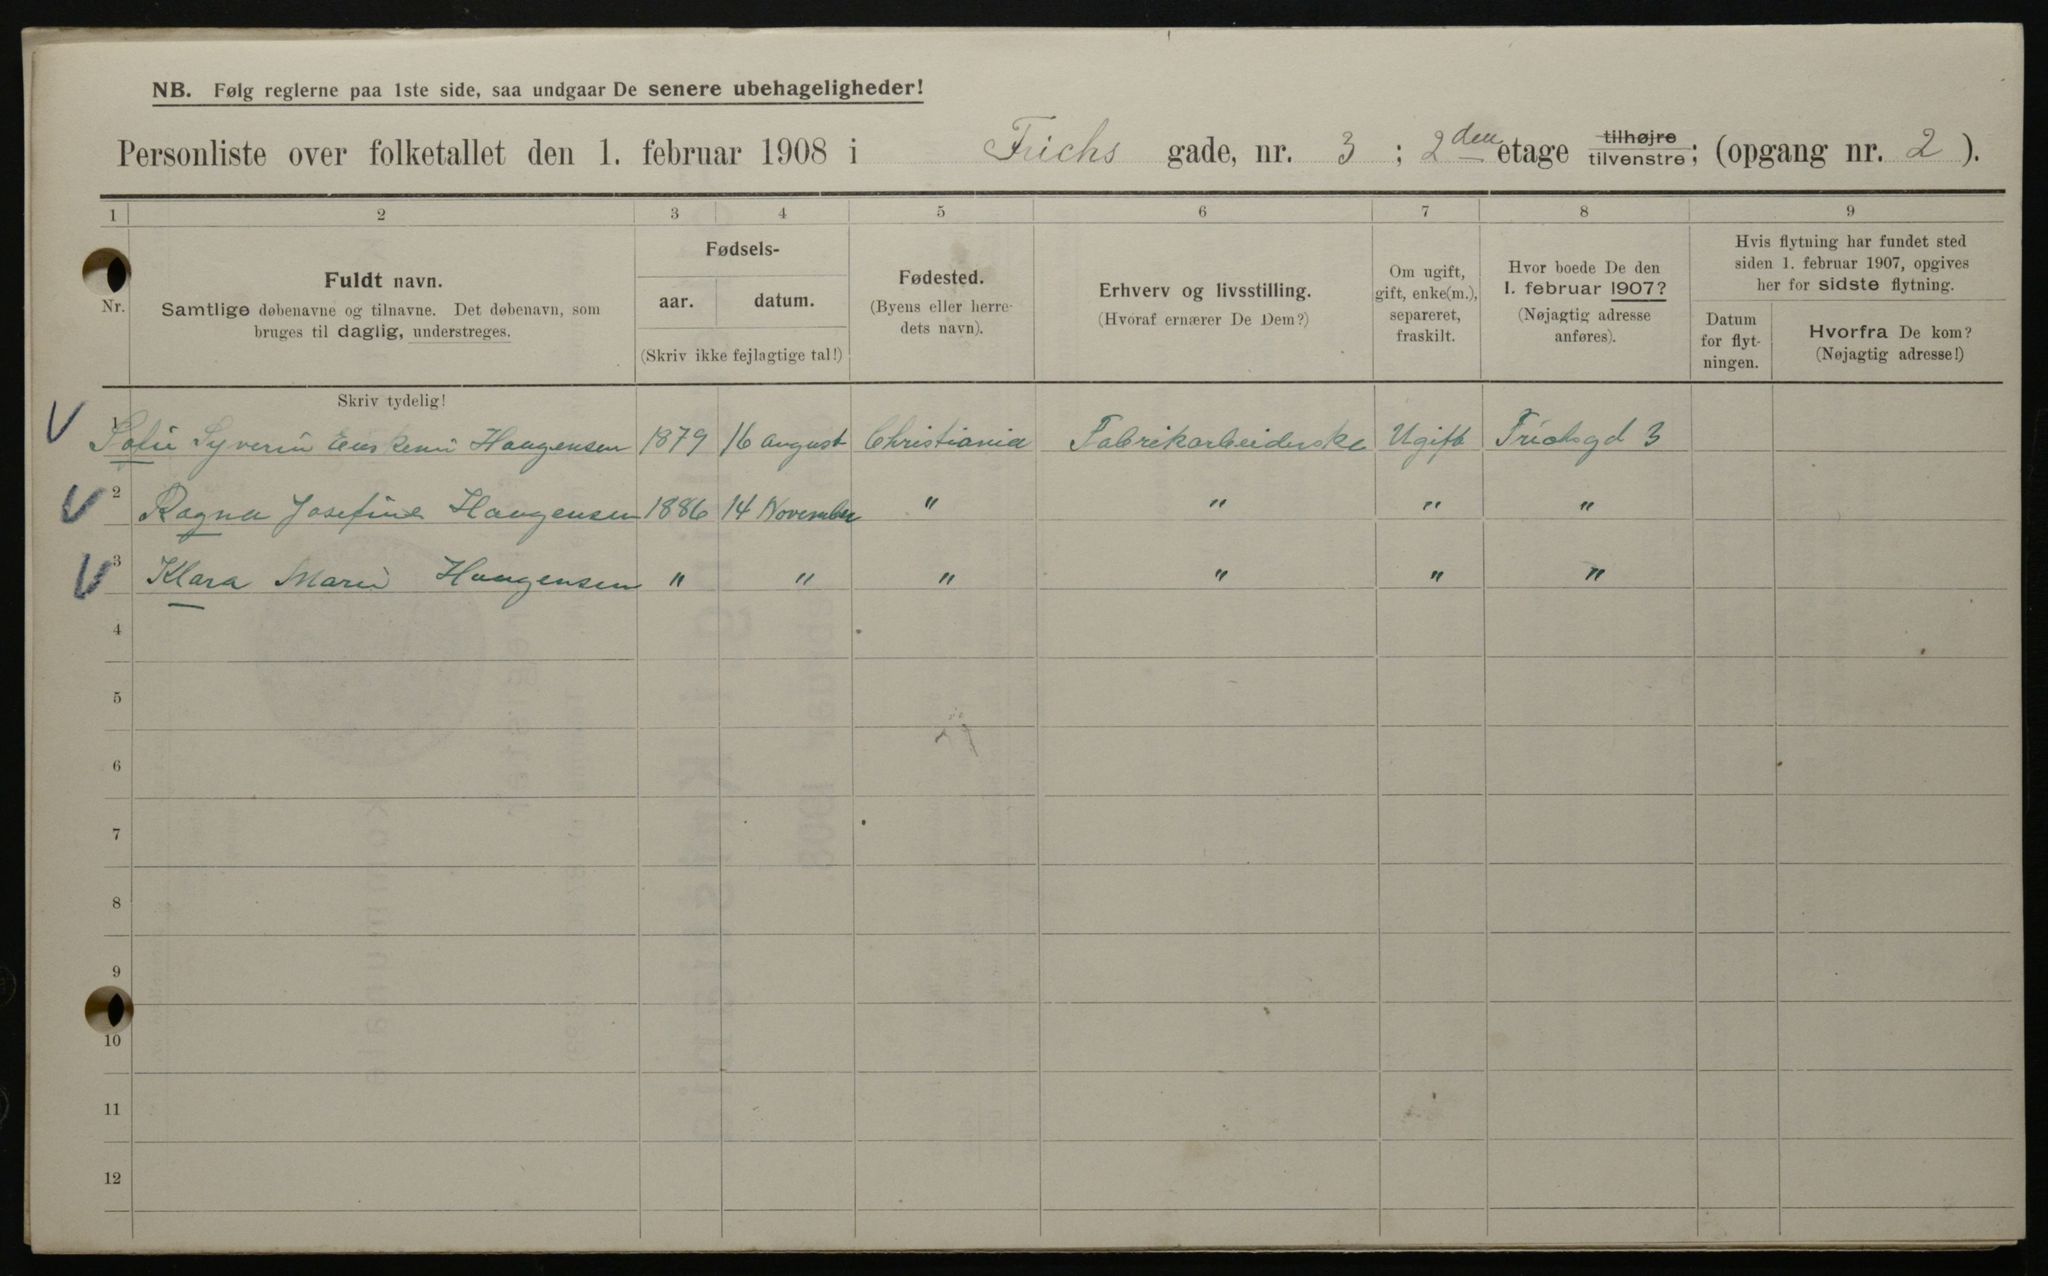 NB. Følg reglerne paa 1ste side, saa undgaar De senere ubehageligheder!
Personliste over folketallet den 1. februar 1908 i Frichs gade, nr. 3 ; 2den etage tilhøjre tilvenstre; (opgang nr. 2 ).
1 2 3 4 5 6 7 8 9
Nr.
Fuldt navn.
Samtlige døbenavne og tilnavne. Det døbenavn, som
bruges til daglig, understreges.
Skriv tydelig!
Fødsels-
aar. datum.
(Skriv ikke fejlagtige tal!)
Fødested.
(Byens eller herre-
dets navn).
Erhverv og livsstilling.
(Hvoraf ernærer De Dem?)
Om ugift,
gift, enke(m.),
separeret,
fraskilt.
Hvor boede De den
1. februar 1907?
(Nøjagtig adresse
anføres).
Hvis flytning har fundet sted
siden 1. februar 1907, opgives
her for sidste flytning.
Datum
for flyt-
ningen.
Hvorfra De kom?
(Nøjagtig adresse!)
1 Sofie Syverin Haagensen 1879 16 august Christiania Fabrikarbeiderske Ugift Frichsgd 3
2 Ragna Josefine Haugensen 1886 14 November " " " "
3 Klara Marie Haugensen " " " " " "
4
5
6
7
8
9
10
11
12